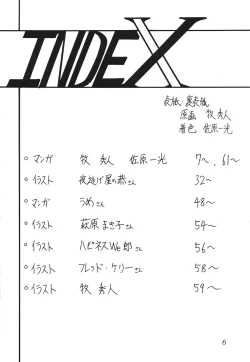 INDEX
表紙・裏表紙
原画 牧秀人
着色 佐原一光
○ マンガ 牧 秀人 佐原一光 7〜, 61〜
○ イラスト 夜逃げ屋の恭さん 32〜
○ マンガ うめさん 48〜
○ イラスト 萩原まき子さん 54〜
○ イラスト ハピネスWe郎さん 56〜
○ イラスト フレッド・ケリーさん 58〜
○ イラスト 牧 秀人 59〜
6